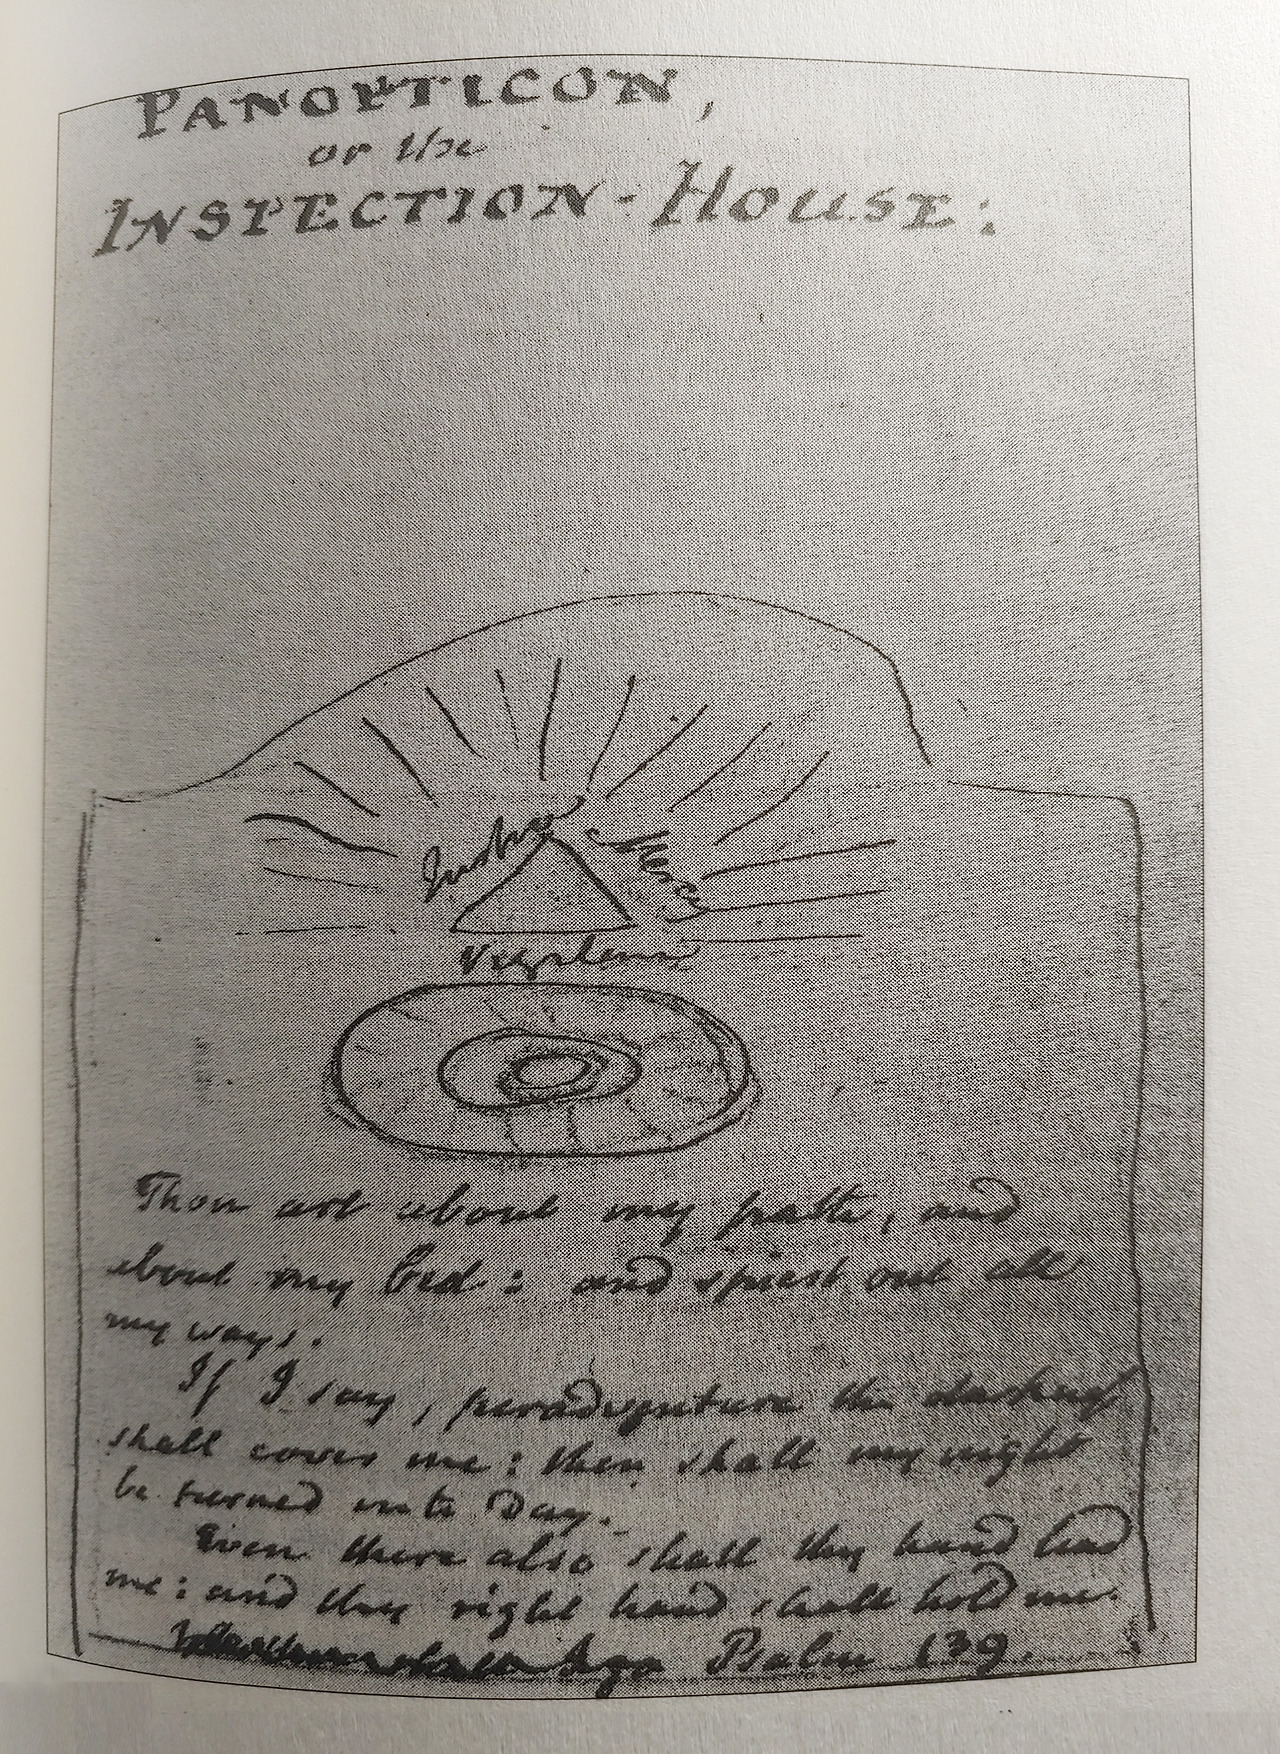 PANOPTICON,
or the
INSPECTION-HOUSE:
Mercy
Justice
Vigilance
Thou art about my path, and
about my bed: and spiest out all
my ways.
If I say, peradventure the darkness
shall cover me: then shall my night
be turned into Day.
Even there also shall thy hand lead
me: and thy right hand shall hold me.
Psalm 139.